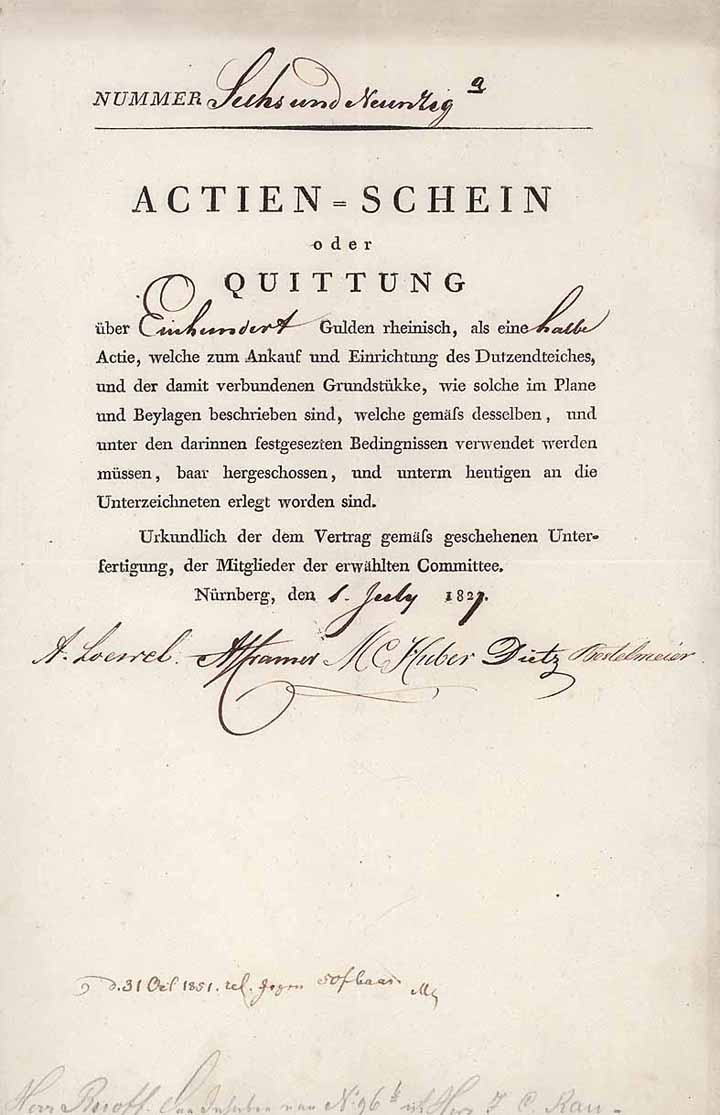 NUMMER Sechs und Neunzig a
ACTIEN = SCHEIN
oder
QUITTUNG
über Einhundert Gulden rheinisch, als eine halbe
Actie, welche zum Ankauf und Einrichtung des Dutzendteiches,
und der damit verbundenen Grundstükke, wie solche im Plane
und Beylagen beschrieben sind, welche gemäſs desselben, und
unter den darinnen festgesezten Bedingnissen verwendet werden
müssen, baar hergeschossen, und unterm heutigen an die
Unterzeichneten erlegt worden sind.
Urkundlich der dem Vertrag gemäſs geschehenen Unter-
fertigung, der Mitglieder der erwählten Committee.
Nürnberg, den 1. July 1827.
A. Loewel. Cramer M C Huber Dietz Bestelmeier.
d. 31 Oct 1851. gegen 50 f baar.
Herr Inhaber von N. 96 b ist Herr J. C. Rau-